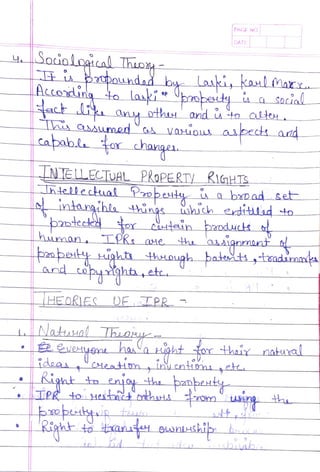 PAGE NO.
DATE:
4. Sociological Theory -
It is propounded by Laski, Karl Marx.
According to laski " property is a social
fact like any other and is to alter.
This assumed as various aspects and
capable for changes.
INTELLECTUAL PROPERTY RIGHTS
Intellectual Property is a broad set
of intangible things which entitled to
protected for certain products of
human. IPRs are the assignment of
property rights through patents, trademarks
and copyrights, etc.
THEORIES OF IPR -
1. Natural Theory -
• Everyone has a right for their natural
ideas, creation, inventions, etc.
• Right to enjoy the property
• IPR to restrict others from using the
property.
• Right to transfer ownership